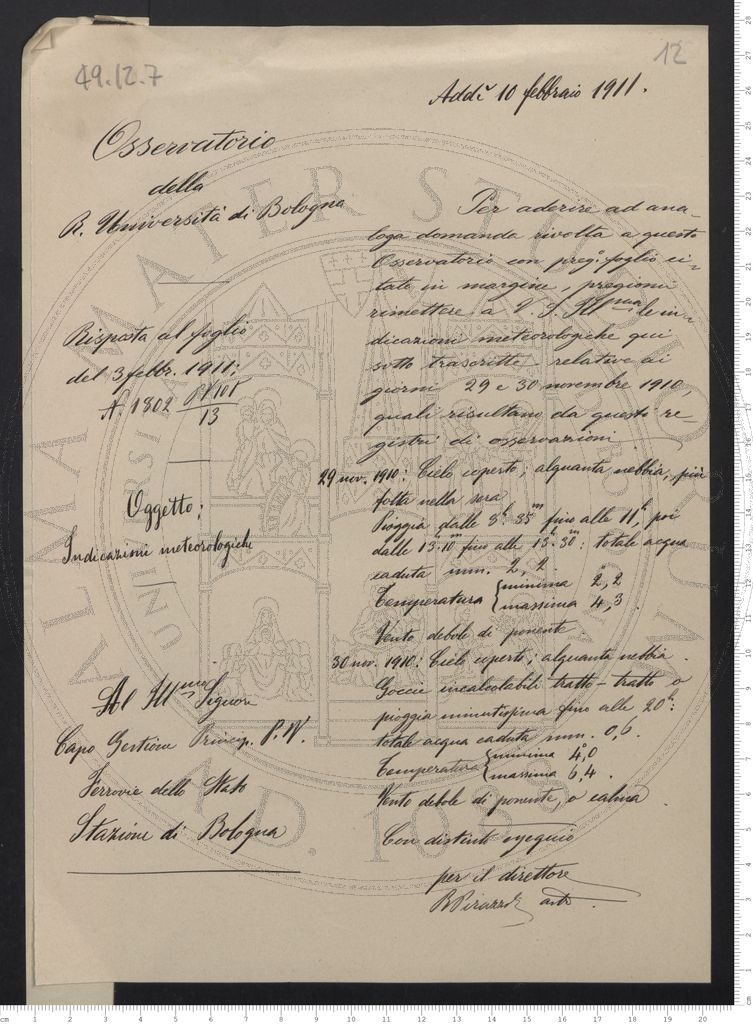 49.12.7
12
Addì 10 febbraio 1911.
Osservatorio
della
R. Università di Bologna
Risposta al foglio
del 3 febbr. 1911;
N. 1802
13
Oggetto:
Indicazioni meteorologiche
Al Ill.mo Signore
Capo Gestione Princip. P.V.
Ferrovie dello Stato
Stazione di Bologna
Per aderire ad ana-
loga domanda rivolta a questo
Osservatorio con preg.o foglio ci-
tato in margine, pregiomi
rimettere a V. S. Ill.ma le in-
dicazioni meteorologiche qui
sotto trascritte relative ai
giorni 29 e 30 novembre 1910,
quali risultano da questi re-
gistri di osservazioni.
29 nov. 1910: Cielo coperto; alquanta nebbia, più
folta nella sera
Pioggia dalle 35m fino alle 11h, poi
dalle 13h.10m fino alle 13h.30m: totale acqua
caduta mm. 2,2.
Temperatura { minima 2°,2
massima 4,3
Vento debole di ponente.
30 nov. 1910: Cielo coperto; alquanta nebbia.
Goccie incalcolabili tratto-tratto o
pioggia minutissima fino alle 20h:
totale acqua caduta mm. 0,6.
Temperatura { minima 4°,0
massima 6,4.
Vento debole di ponente, o calma
Con distinto ossequio
per il direttore
ALMA MATER STUDIORUM
A.D. 1088